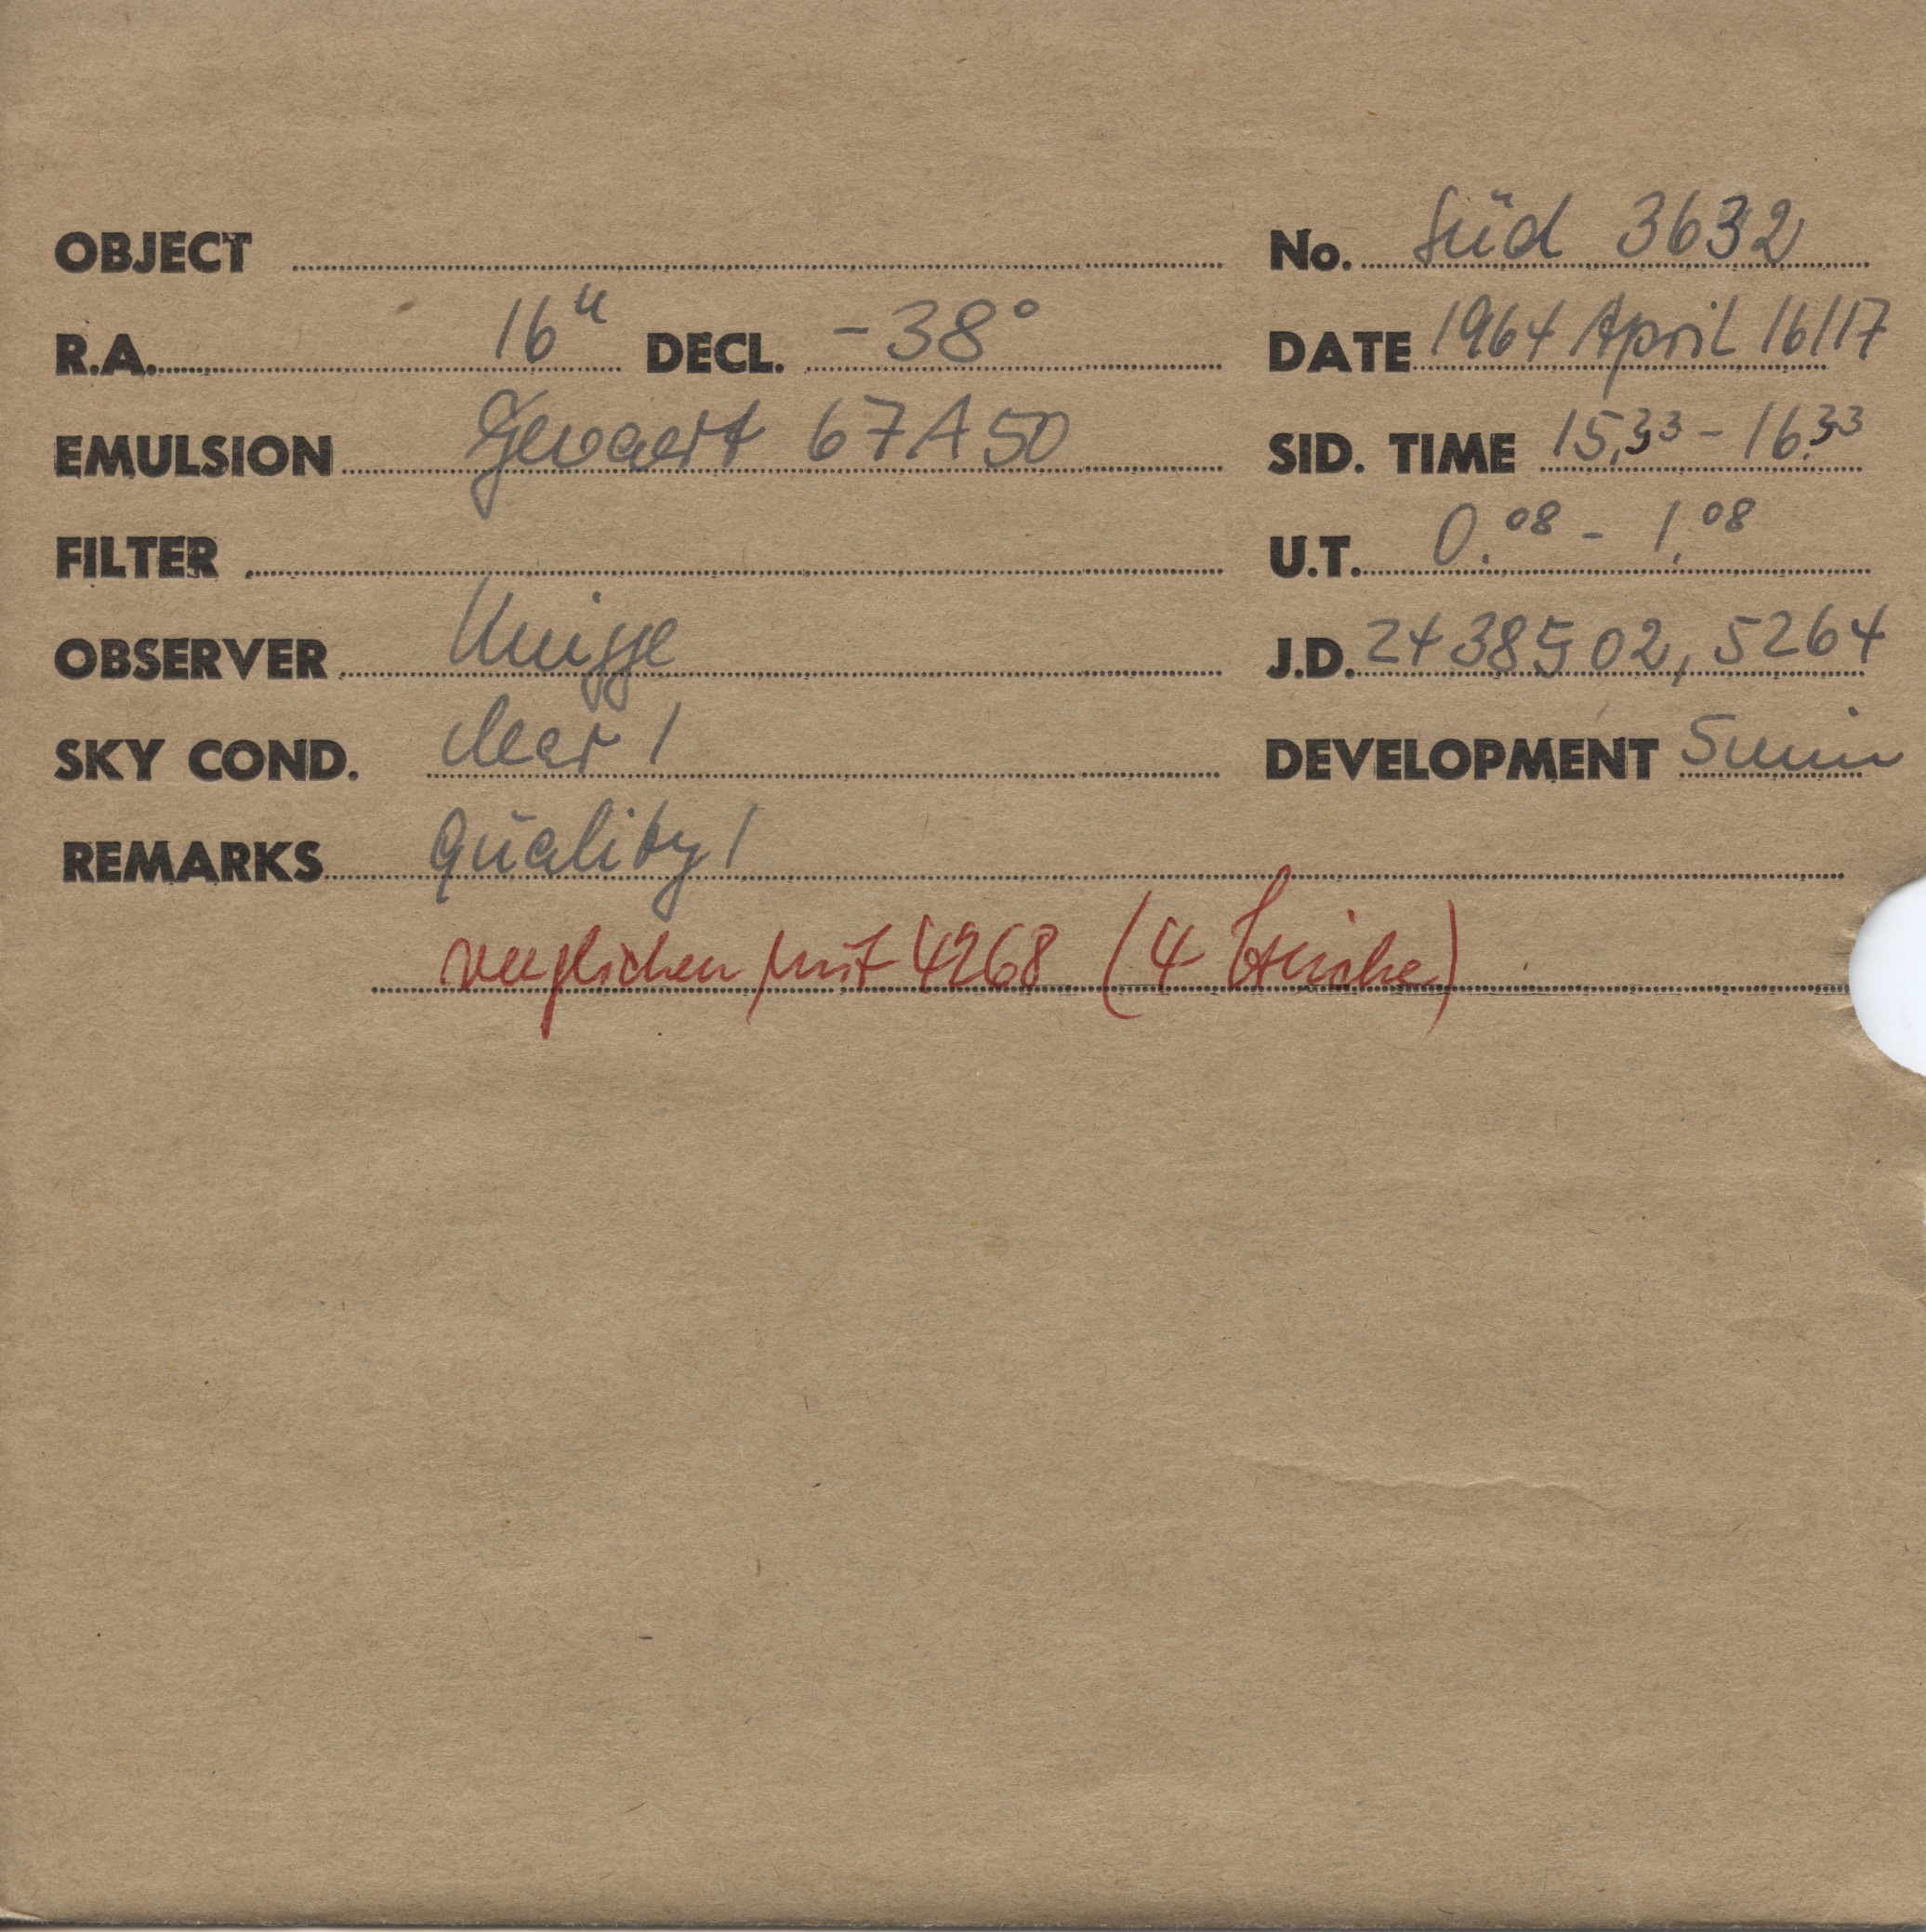 OBJECT No. Süd 3632
R.A. 16h DECL. -38° DATE 1964 April 16/17
EMULSION Gevaert 67A50 SID. TIME 15.33 - 16.33
FILTER U.T. 0.08 - 1.08
OBSERVER Knigge J.D. 2438502,5264
SKY COND. clear 1 DEVELOPMENT 5 min
REMARKS quality 1
verglichen mit 4268 (4 Striche)